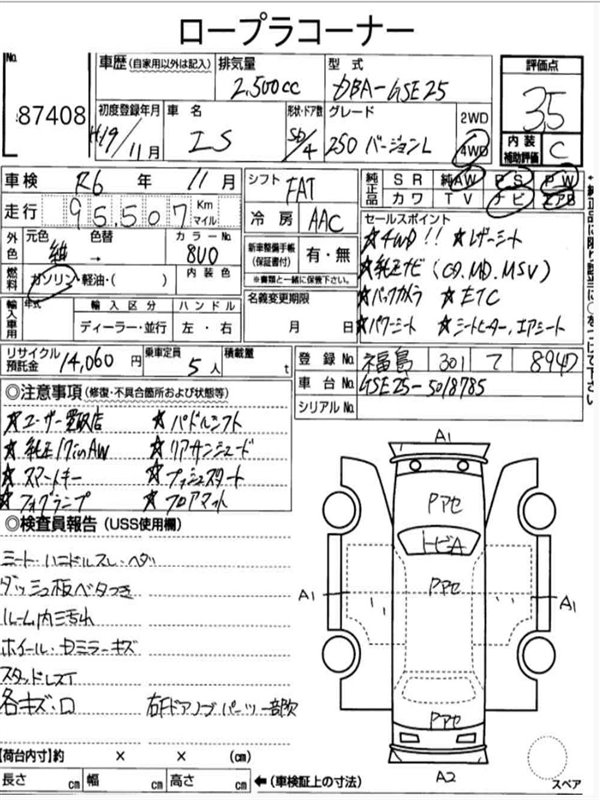 ロープラコーナー
No.
87408
車歴 (自家用以外は記入)
排気量
2,500cc
型式
DBA-GSE25
評価点
3.5
初度登録年月
H19/11月
車名
IS
形状・ドア数
SD/4
グレード
250 バージョンL
2WD
4WD
内装
補助評価
C
車検 R6 年 11月
シフト FAT
純正品
SR 純AW PS PW
カワ TV ナビ エアB
走行 95,507 Km マイル
冷房 AAC
セールスポイント
☆4WD!! ☆レザーシート
☆純正ナビ(CD.MD.MSV)
☆バックカメラ ☆ETC
☆パワーシート ☆シートヒーター,エアシート
外色
元色 紺 色替 →
カラーNo. 8U0
新車整備手帳
(保証書付)
有・無
※書類と一緒に保管下さい。
燃料 ガソリン・軽油・( )
内装色
名義変更期限
月 日
輸入車用
年式
輸入区分
ハンドル
ディーラー・並行
左・右
リサイクル
預託金
14,060円
乗車定員 5人
積載量 t
登録No. 福島 301 て 8947
車台No. GSE25-5018785
シリアルNo.
◎注意事項 (修復・不具合箇所および状態等)
☆ユーザー買取店 ☆パドルシフト
☆純正17inAW ☆リアサンシェード
☆スマートキー ☆プッシュスタート
☆フォグランプ ☆フロアマット
◎検査員報告 (USS使用欄)
シート・ハンドルスレ・ヘタリ
ダッシュ板ベタつき
ルーム内汚れ
ホイール・ドミラーキズ
スタッドレスT
各キズ・凹 右Fドアノブパーツ一部欠
A1
Pアセ
トビA
Pアセ
A1
A1
Pアセ
A2
スペア
【荷台内寸】約 × × (cm)
長さ cm 幅 cm 高さ cm ←(車検証上の寸法)